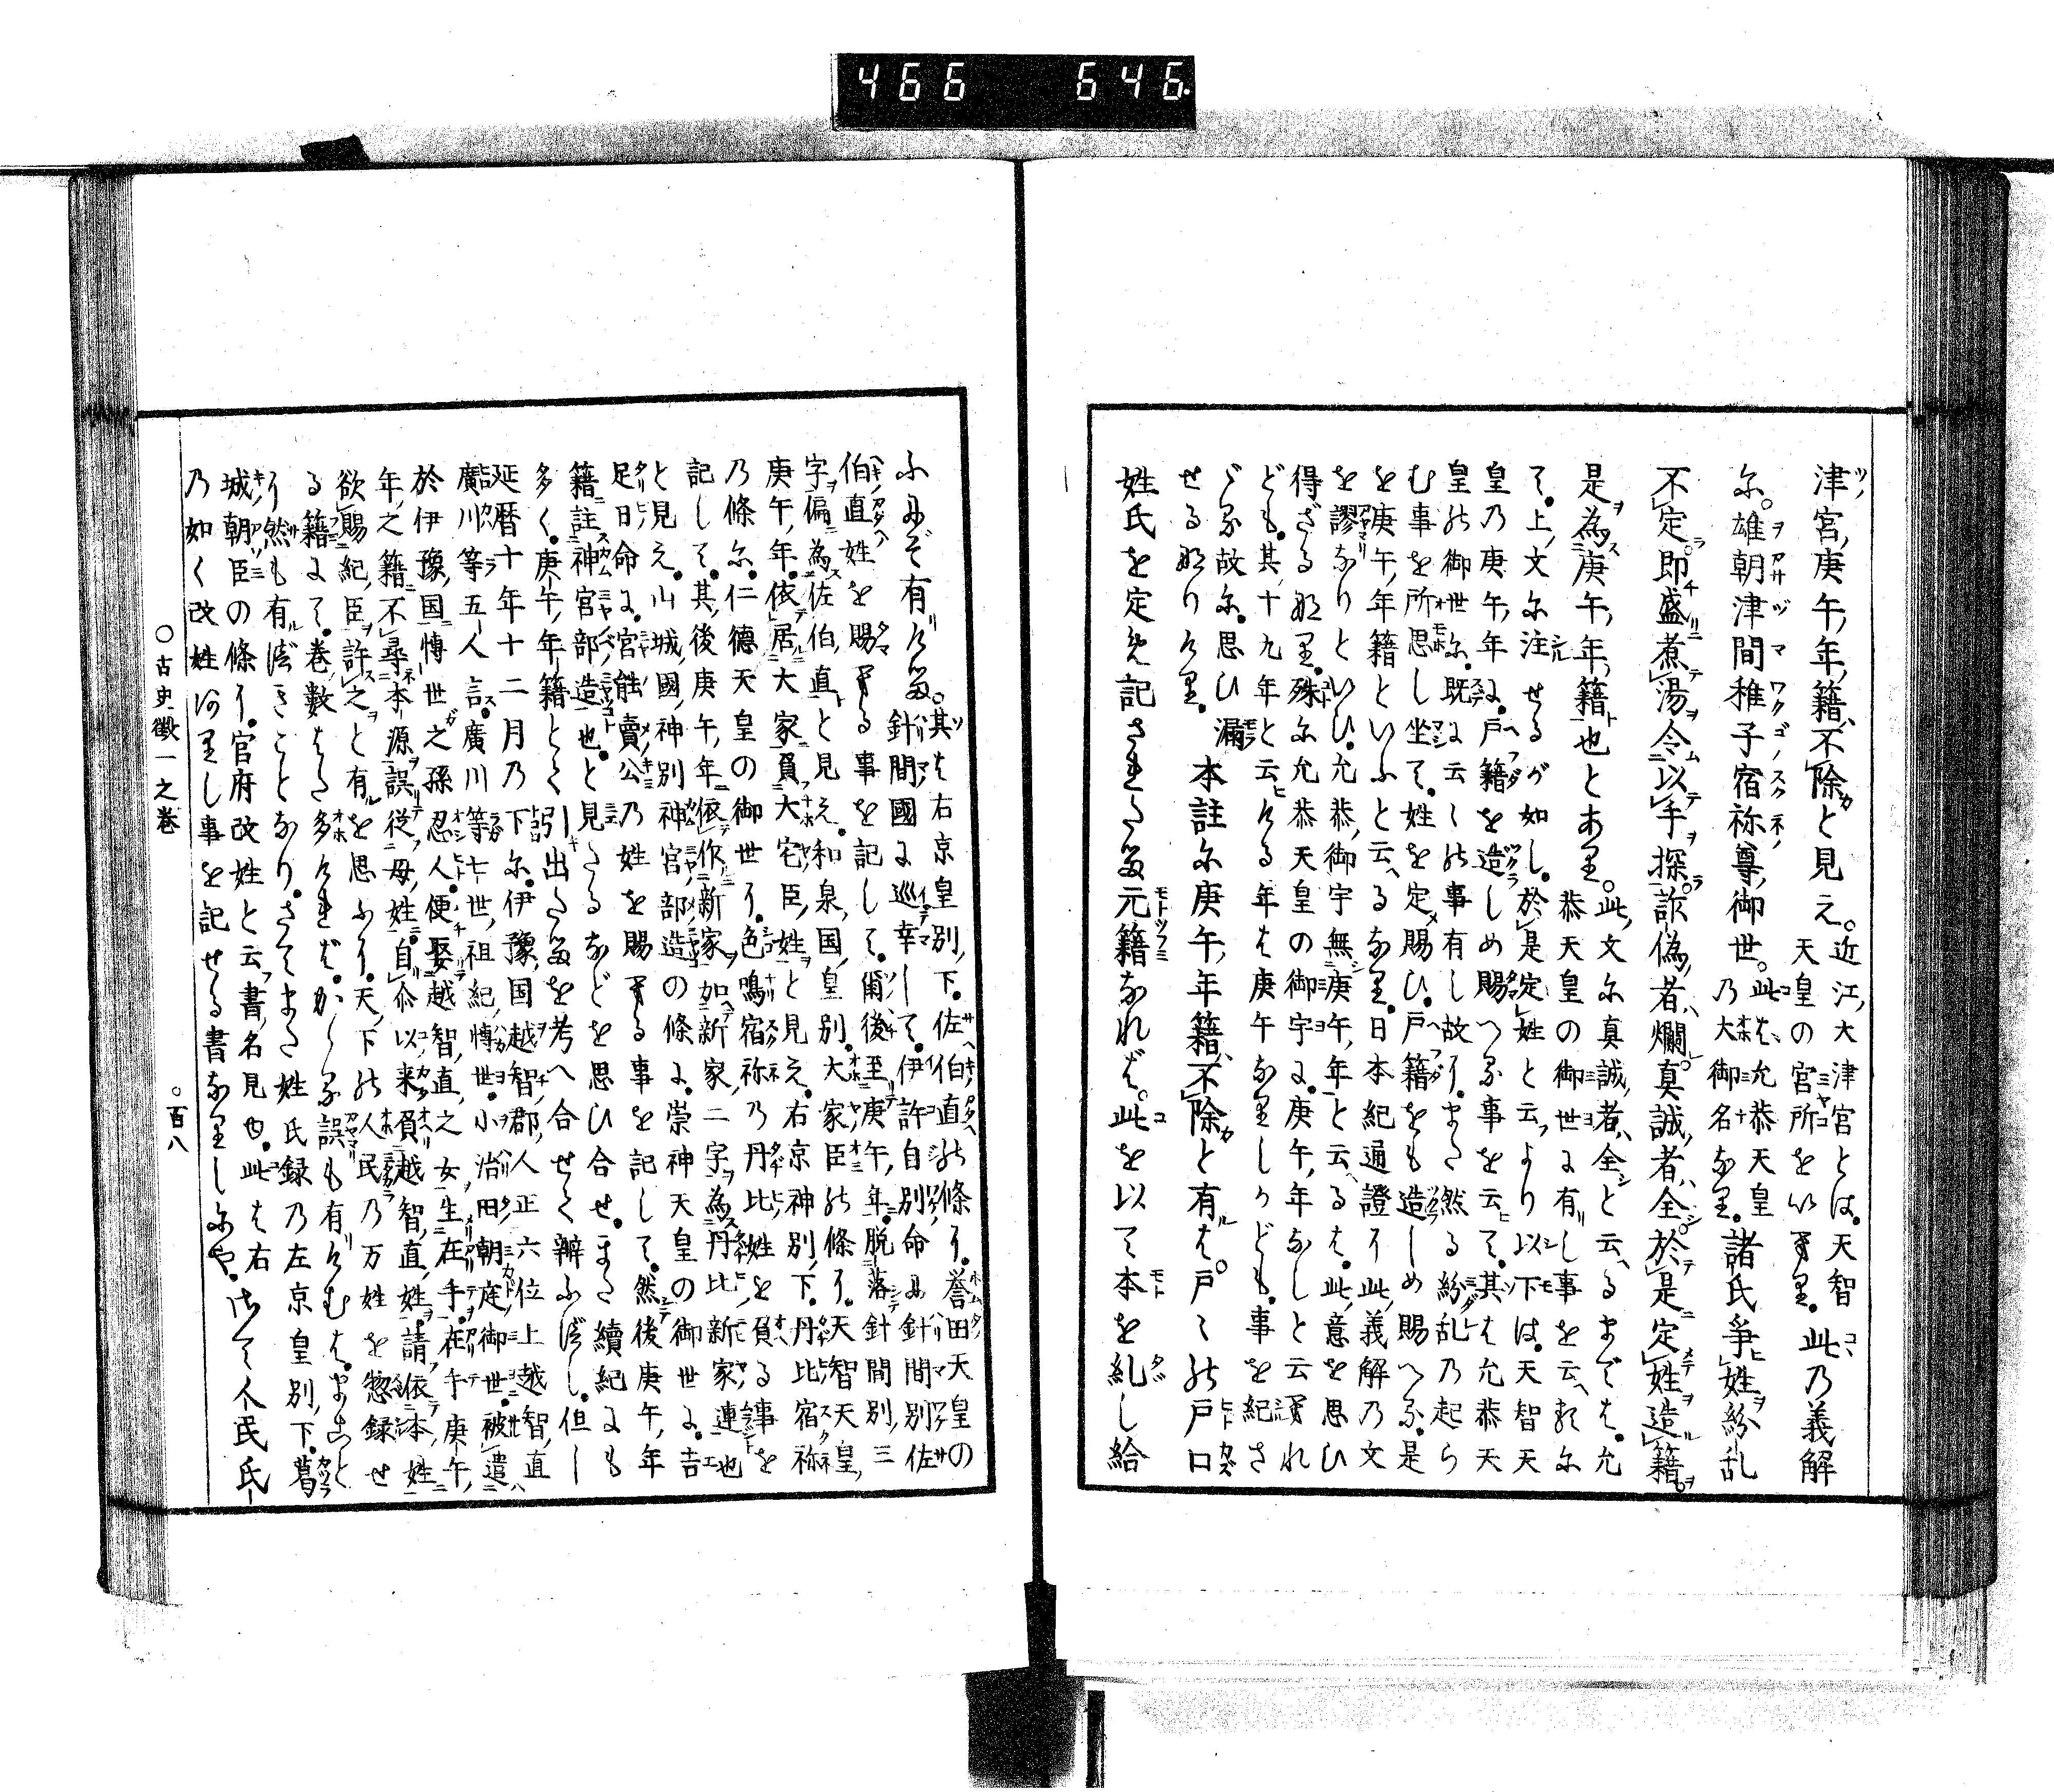 466 646.
津宮庚午年籍不除と見え。近江大津宮とは。天智
天皇の宮所を以てなり。此乃義解
尓。雄朝津間稚子宿祢尊御世。此は允恭天皇
乃大御名なり。諸氏爭姓紛乱
不定即盛煮湯令以手探詐偽者爛真誠者全於是定姓造籍
是為庚午年籍也とあり。此文尓真誠者全と云るまでは。允
恭天皇の御世に有し事を云へるに
て。上文尓注せるが如し。於是定姓と云より以下は。天智天
皇乃庚午年に。戸籍を造しめ賜へる事を云て。其は允恭天
皇の御世尓。既に云々の事有し故に。また然る紛乱乃起ら
む事を所思し坐て。姓を定賜ひ。戸籍をも造しめ賜へる。是
を庚午年籍といふと云るなり。日本紀通證に此義解乃文
を謬なりといひ。允恭御宇無庚午年と云るは。此意を思ひ
得ざるなり。殊尓允恭天皇の御宇に。庚午年なしと云れ
ども。其十九年と云ける年は庚午なりしかども。事を紀さ
ざる故尓。思ひ漏
せるなりけり。本註尓庚午年籍不除と有は。戸々の戸口
姓氏を定め記されたる元籍なれば。此を以て本を糺し給
ふめぞ有ける。其は右京皇別下。佐伯直の條に。譽田天皇の
針間國に巡幸して。伊許自別命に針間別佐
伯直姓を賜へる事を記して。爾後至庚午年。脱落針間別三
字偏為佐伯直と見え。和泉国皇別。大家臣の條に。天智天皇
庚午年。依居大家負大宅臣姓と見え。右京神別下。丹比宿祢
乃條尓。仁德天皇の御世に。色鳴宿祢乃丹比姓を負る事を
記して。其後庚午年依作新家如新家二字為丹比新家連也
と見え。山城國神別神宮部造の條に。崇神天皇の御世に。吉
足日命に。宮能賣公乃姓を賜へる事を記して。然後庚午年
籍註神宮部造也。と見たるなどを思ひ合せ。また續紀にも
多く。庚午年籍とて引出たるを考へ合せて辨ふべし。但し
延暦十年十二月乃下尓。伊豫国越智郡人正六位上越智直
廣川等五人言。廣川等七世祖紀博世。小治田朝庭御世。被遣
於伊豫国博世之孫忍人。便娶越智直之女。生在手。在手庚午
年之籍不尋本源誤從母姓。自尓以来負越智直姓。請依本姓
欲賜紀臣許之と有るを思ふに。天下の人民乃万姓を惣録せ
る籍にて。巻數はた多ければ。かゝる誤も有けむは。まこと
に然も有べきことなり。さてまた姓氏録乃左京皇別下。葛
城朝臣の條に。官府改姓と云書名見ゆ。此は右
乃如く改姓ありし事を記せる書なりしにや。はて人民氏
○古史徴一之巻
○百八